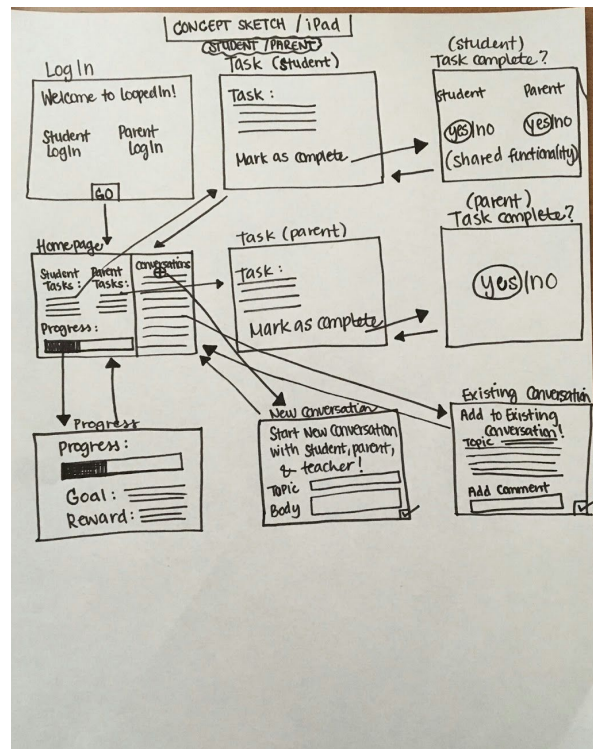 CONCEPT SKETCH / iPad
STUDENT / PARENT
Log In
Welcome to LoopedIn!
Student
Log In
Parent
Log In
GO
Task (student)
Task :
Mark as complete
(student)
Task complete?
Student
Parent
yes/no
yes/no
(shared functionality)
Homepage
Student
Tasks:
Parent
Tasks:
Progress:
Conversations
Task (parent)
Task :
Mark as complete
(parent)
Task complete?
yes/no
Progress
Progress:
Goal:
Reward:
New Conversation
Start New Conversation
with student, parent,
& teacher!
Topic
Body
Existing Conversation
Add to Existing
Conversation!
Topic
Add Comment